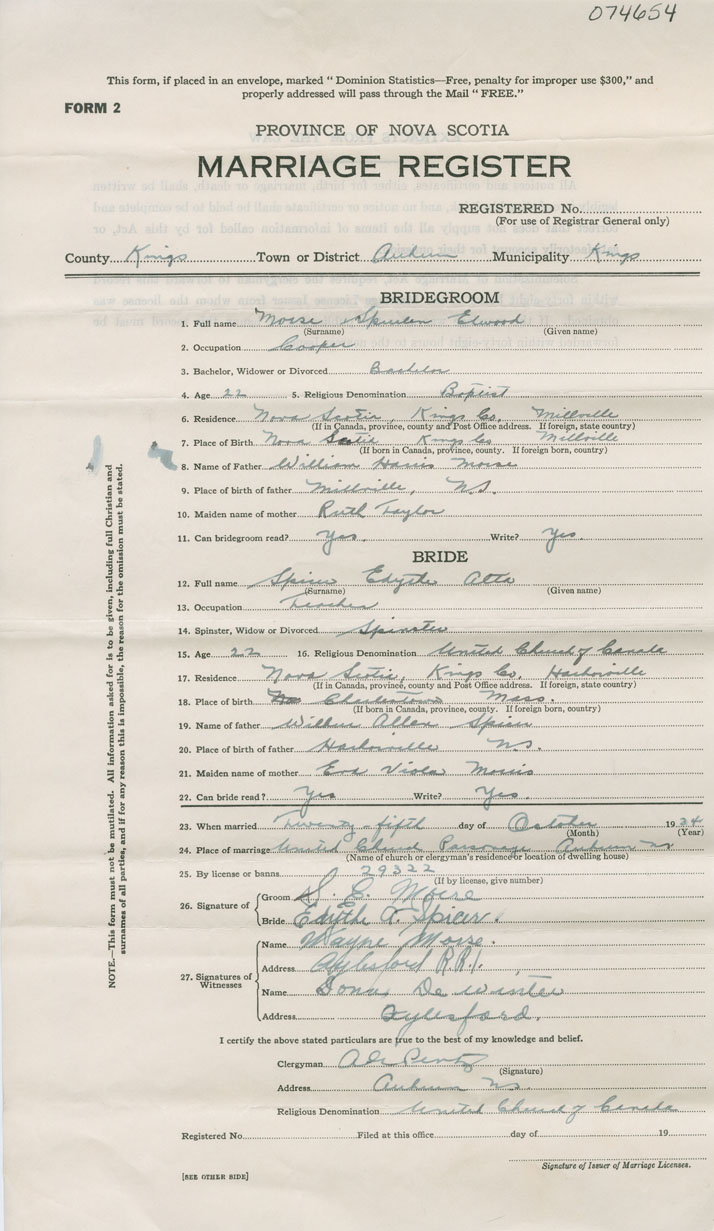 074654
This form, if placed in an envelope, marked "Dominion Statistics—Free, penalty for improper use $300," and
properly addressed will pass through the Mail "FREE."
FORM 2
PROVINCE OF NOVA SCOTIA
MARRIAGE REGISTER
REGISTERED No.
(For use of Registrar General only)
County Kings Town or District Auburn Municipality Kings
BRIDEGROOM
1. Full name Morse Elwood
(Surname) (Given name)
2. Occupation Cooper
3. Bachelor, Widower or Divorced Bachelor
4. Age 22 5. Religious Denomination Baptist
6. Residence Nova Scotia, Kings Co, Millville
(If in Canada, province, county and Post Office address. If foreign, state country)
7. Place of Birth Nova Scotia Kings Co Millville
(If born in Canada, province, county. If foreign born, country)
8. Name of Father William Harris Morse
9. Place of birth of father Millville, N.S.
10. Maiden name of mother Ruth Taylor
11. Can bridegroom read? Yes. Write? Yes.
BRIDE
12. Full name Spicer Edythe Alta
(Surname) (Given name)
13. Occupation Teacher
14. Spinster, Widow or Divorced Spinster
15. Age 22 16. Religious Denomination United Church of Canada
17. Residence Nova Scotia, Kings Co, Harborville
(If in Canada, province, county and Post Office address. If foreign, state country)
18. Place of birth Charlestown Mass.
(If born in Canada, province, county. If foreign born, country)
19. Name of father Wilbur Allan Spicer
20. Place of birth of father Harborville N.S.
21. Maiden name of mother Eva Viola Morris
22. Can bride read? Yes Write? Yes.
23. When married Twenty-fifth day of October 1934
(Month) (Year)
24. Place of marriage United Church Parsonage Auburn NS
(Name of church or clergyman's residence or location of dwelling house)
25. By license or banns 29322
(If by license, give number)
26. Signature of Groom S. E. Morse
Bride Edyth A. Spicer.
27. Signatures of Witnesses
Name Wayne Morse.
Address Aylesford R.R.1.
Name Dona De Winter
Address Aylesford.
I certify the above stated particulars are true to the best of my knowledge and belief.
Clergyman
(Signature)
Address Auburn NS.
Religious Denomination United Church of Canada
Registered No. Filed at this office day of 19
Signature of Issuer of Marriage Licenses.
[SEE OTHER SIDE]
NOTE.—This form must not be mutilated. All information asked for is to be given, including full Christian and
surnames of all parties, and if for any reason this is impossible, the reason for the omission must be stated.